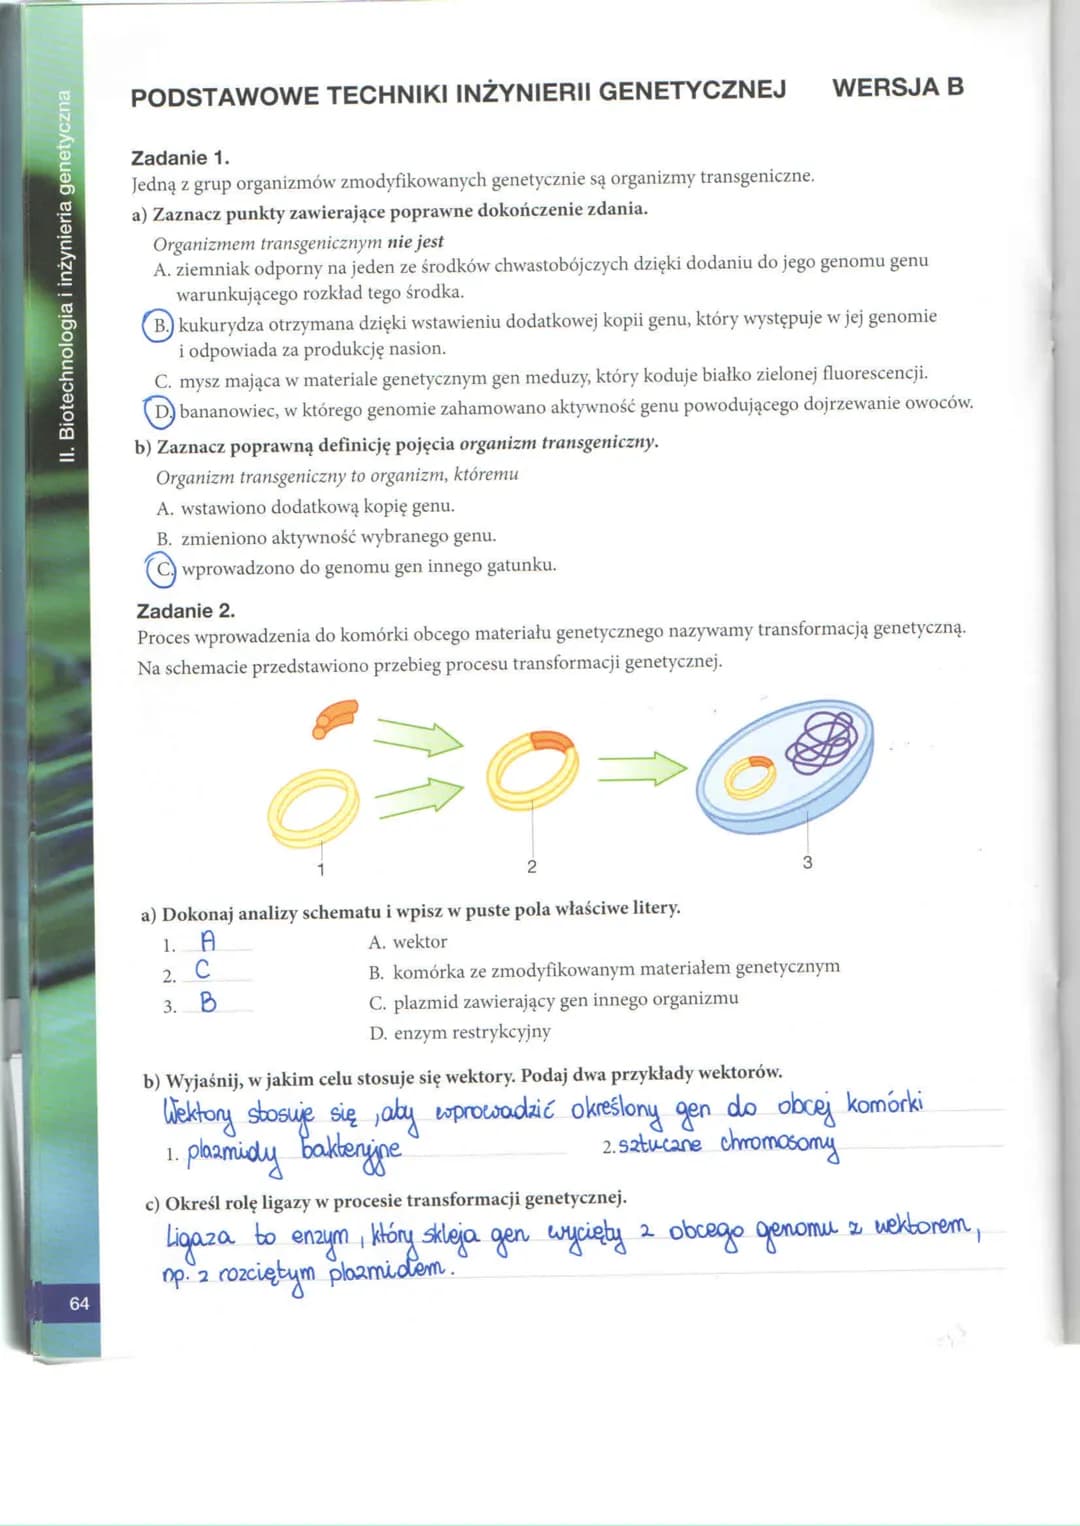 II. Biotechnologia i inżynieria genetyczna
PODSTAWOWE TECHNIKI INŻYNIERII GENETYCZNEJ WERSJA B
Zadanie 1.
Jedną z grup organizmów zmodyfikowanych genetycznie są organizmy transgeniczne.
a) Zaznacz punkty zawierające poprawne dokończenie zdania.
Organizmem transgenicznym nie jest
A. ziemniak odporny na jeden ze środków chwastobójczych dzięki dodaniu do jego genomu genu
warunkującego rozkład tego środka.
B. kukurydza otrzymana dzięki wstawieniu dodatkowej kopii genu, który występuje w jej genomie
i odpowiada za produkcję nasion.
C. mysz mająca w materiale genetycznym gen meduzy, który koduje białko zielonej fluorescencji.
D. bananowiec, w którego genomie zahamowano aktywność genu powodującego dojrzewanie owoców.
b) Zaznacz poprawną definicję pojęcia organizm transgeniczny.
Organizm transgeniczny to organizm, któremu
A. wstawiono dodatkową kopię genu.
B. zmieniono aktywność wybranego genu.
C. wprowadzono do genomu gen innego gatunku.
Zadanie 2.
Proces wprowadzenia do komórki obcego materiału genetycznego nazywamy transformacją genetyczną.
Na schemacie przedstawiono przebieg procesu transformacji genetycznej.
1 2 3
a) Dokonaj analizy schematu i wpisz w puste pola właściwe litery.
1. A A. wektor
2. C B. komórka ze zmodyfikowanym materiałem genetycznym
3. B C. plazmid zawierający gen innego organizmu
D. enzym restrykcyjny
b) Wyjaśnij, w jakim celu stosuje się wektory. Podaj dwa przykłady wektorów.
Wektory stosuje się ,aby wprowadzić określony gen do obcej komórki
1. plazmidy bakteryjne 2. sztuczne chromosomy
c) Określ rolę ligazy w procesie transformacji genetycznej.
Ligaza to enzym, który skleja gen wycięty z obcego genomu z wektorem,
np. z rozciętym plazmidem.
64